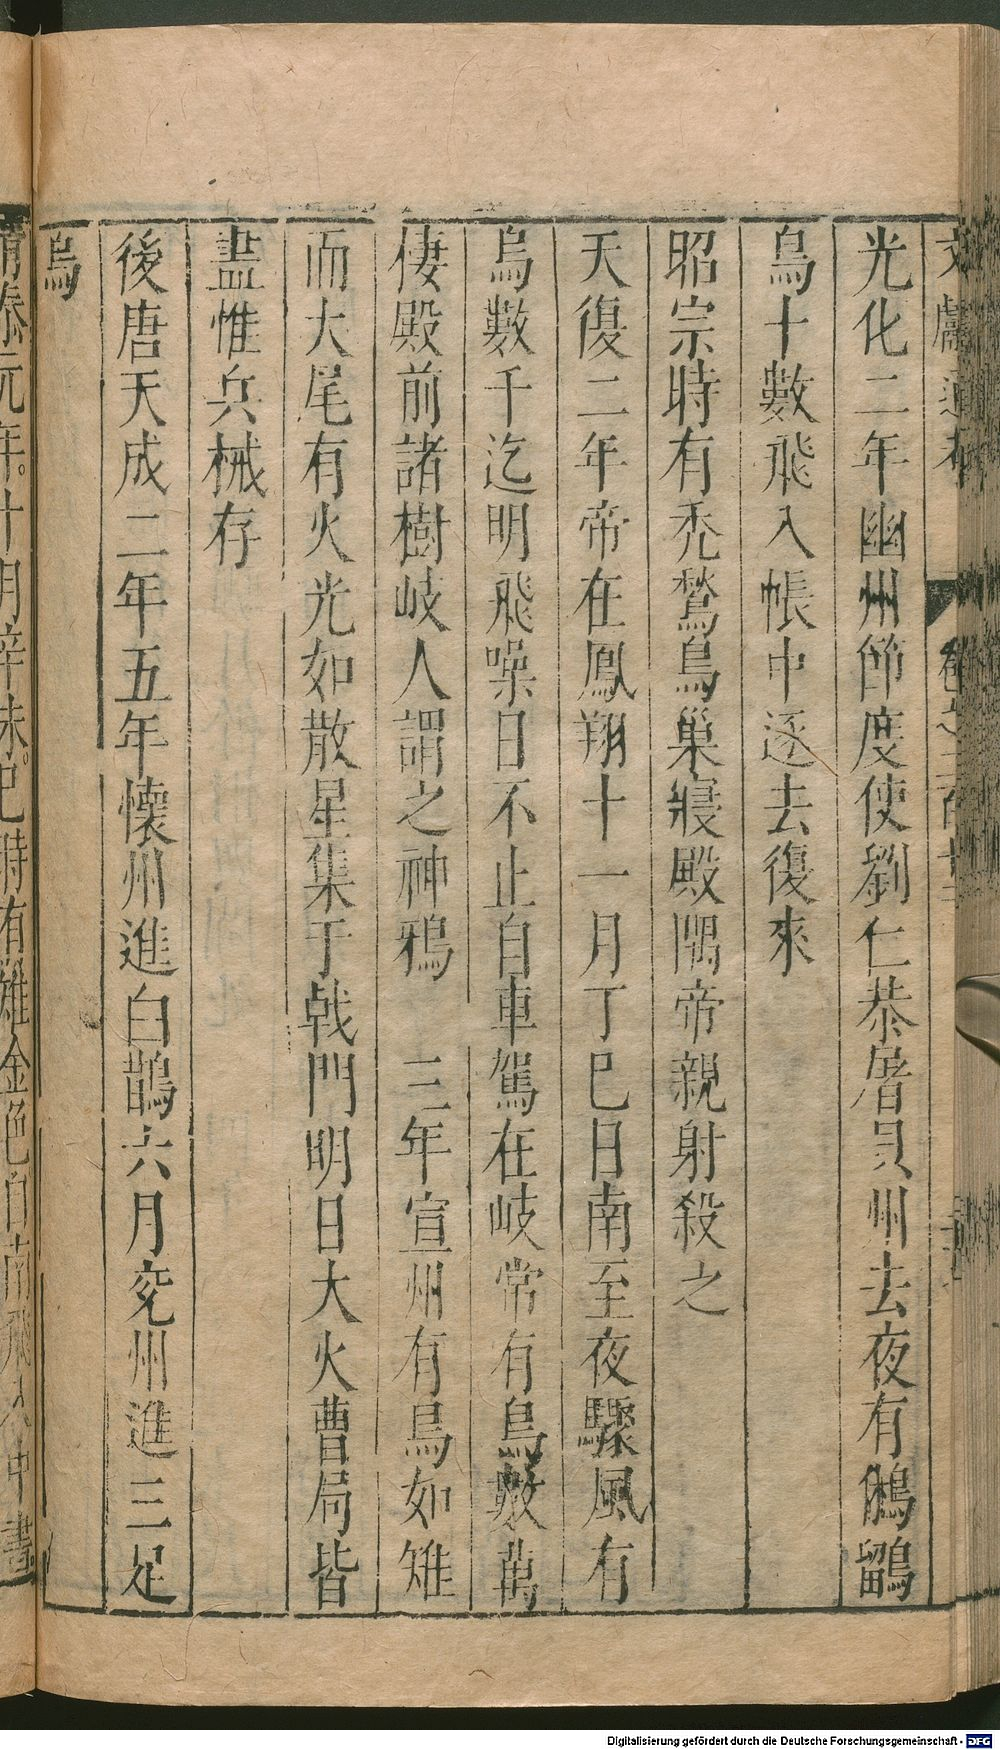 文獻通考 卷之三百十三
光化二年幽州節度使劉仁恭屠貝州去夜有鵂鶹
烏十數飛入帳中逐去復來
昭宗時有禿鶖鳥巢寢殿隅帝親射殺之
天復二年帝在鳳翔十一月丁巳日南至夜驟風有
烏數千迄明飛噪日不止自車駕在岐常有烏數萬
棲殿前諸樹岐人謂之神鴉 三年宣州有鳥如雉
而大尾有火光如散星集于戟門明日大火曹局皆
盡惟兵械存
後唐天成二年五年懷州進白鵲六月兗州進三足
烏
清泰元年。十月辛未。巳時有雉金色自南飛入中書
Digitalisierung gefördert durch die Deutsche Forschungsgemeinschaft - DFG